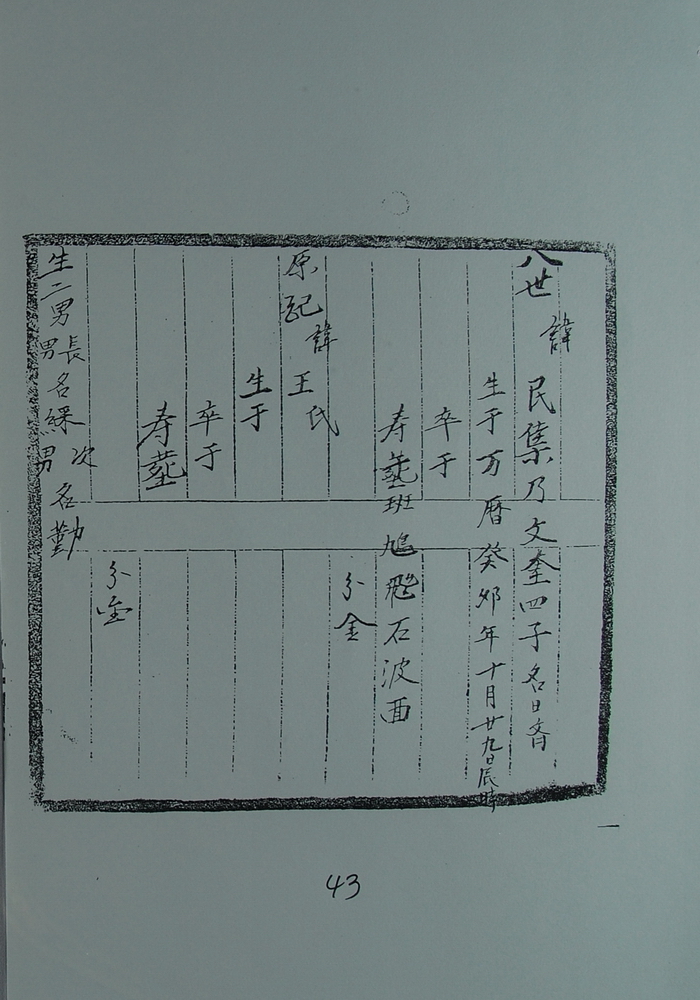 八世 諱 民集乃文奎四子名曰
生于万曆癸卯年十月廿九日辰時
卒于
寿塟班鳩石波面
分金
原配 諱 王氏
生于
卒于
寿塟
分金
生二男長男名綵次男名勤
43